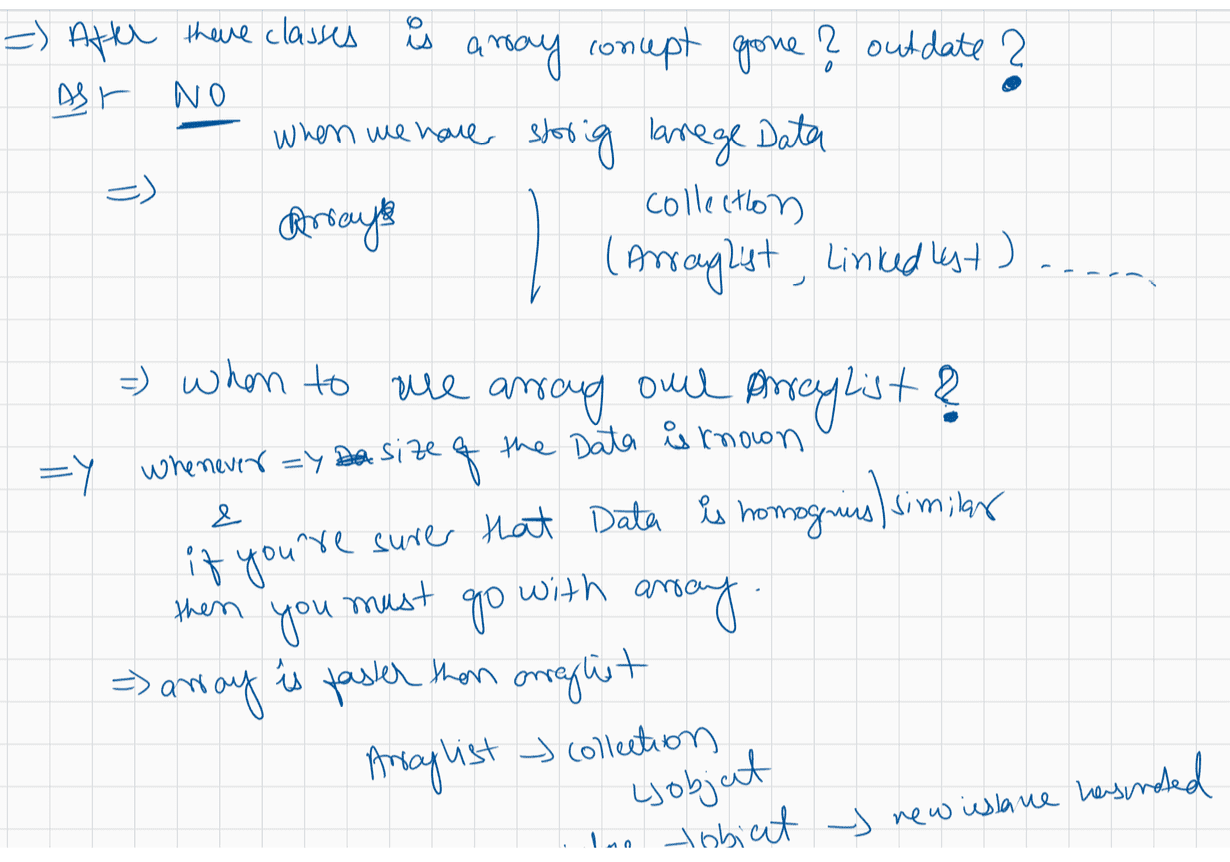 => After these classes is array concept gone? outdate?
Ans NO
when we have storig larege Data
=> Arrays
collection
(Arraylist, Linked list) ------
=> when to use array over ArrayList?
=> whenever => size of the Data is known
&
if you're surer that Data is homoginius/similar
then you must go with array.
=> array is faster then arraylist
Arraylist -> collection
↳object
object -> new